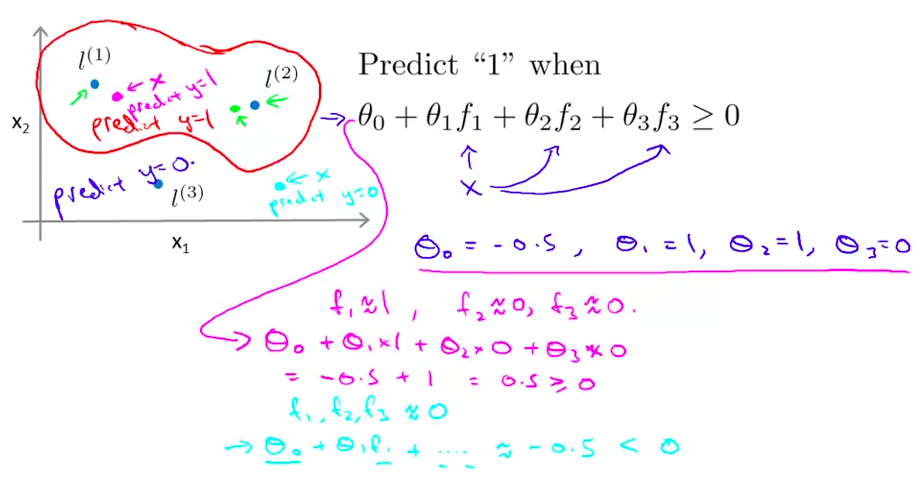 l^(1)
← x
predict y=1
l^(2)
predict y=1
x₂
predict y=0.
l^(3)
← x
predict y=0
x₁
Predict “1” when
θ₀ + θ₁f₁ + θ₂f₂ + θ₃f₃ ≥ 0
x
θ₀ = -0.5 , θ₁ = 1, θ₂ = 1, θ₃ = 0
f₁ ≈ 1 , f₂ ≈ 0, f₃ ≈ 0.
→ θ₀ + θ₁×1 + θ₂×0 + θ₃×0
= -0.5 + 1 = 0.5 ≥ 0
f₁, f₂, f₃ ≈ 0
→ θ₀ + θ₁f₁ + .... ≈ -0.5 < 0